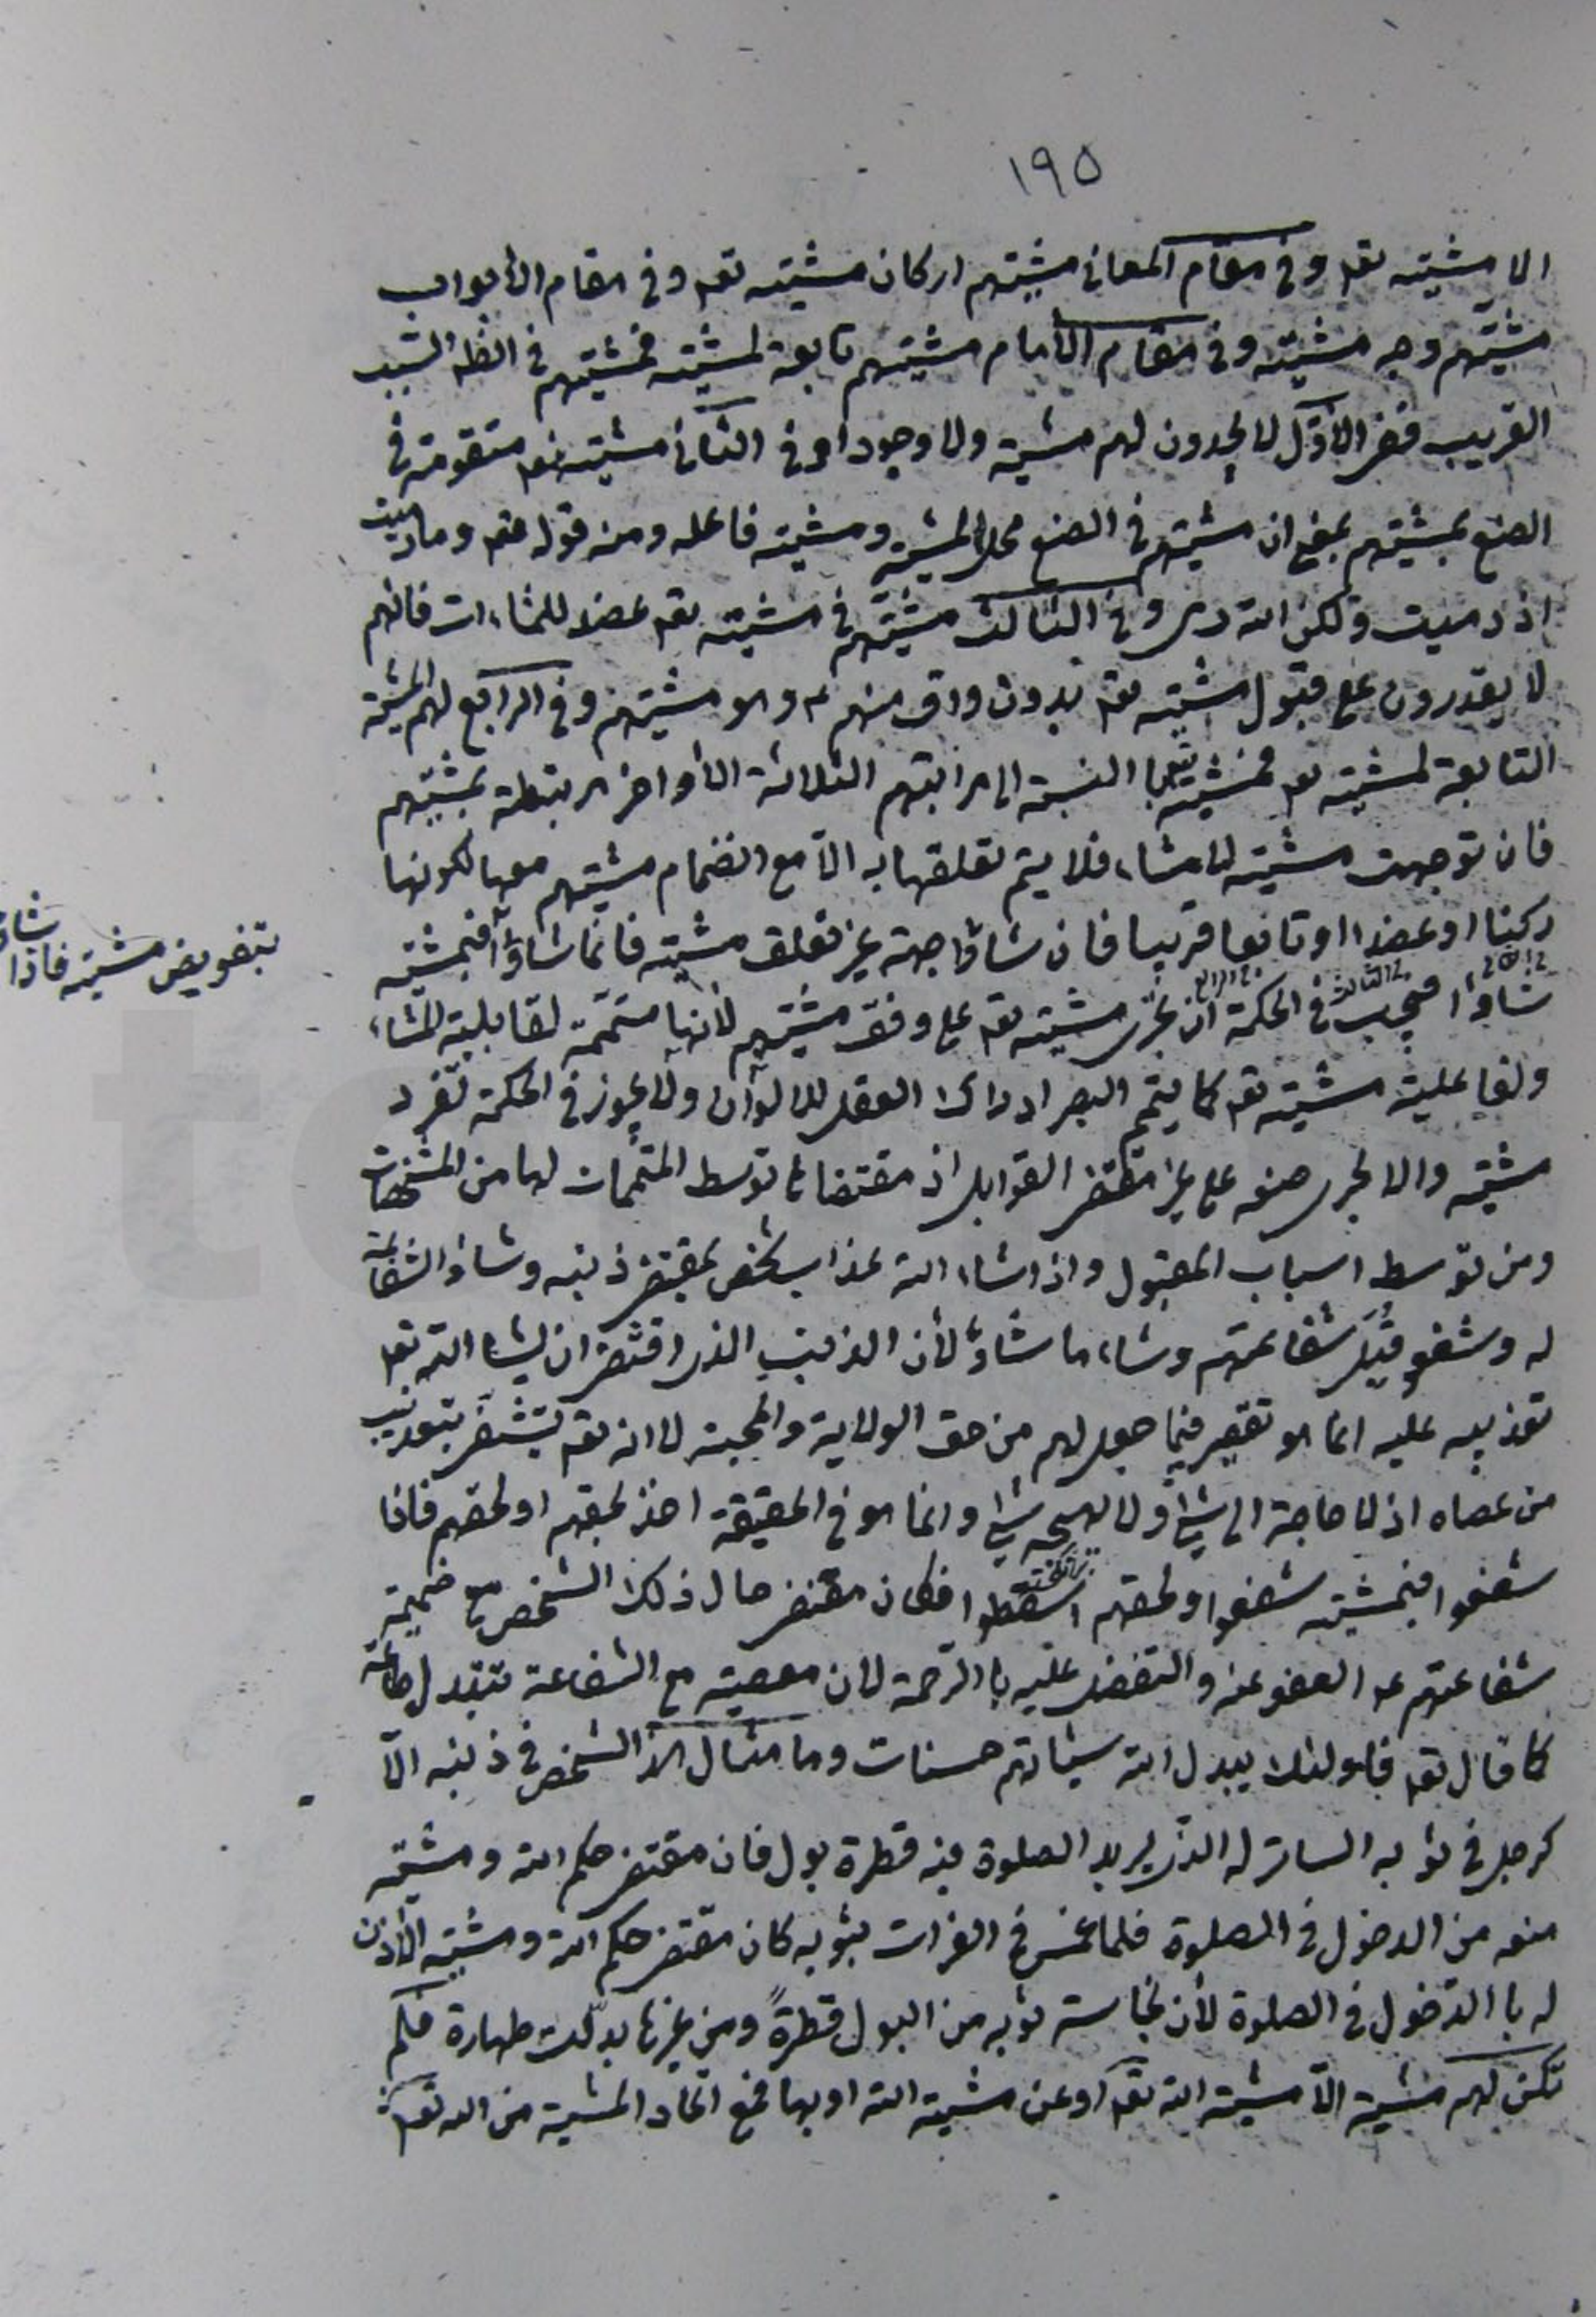 ١٩٥
الا مشيته تعه وفى مقام المعانى مشيتهم اركان مشيته تعه وفى مقام الأبواب
مشيتهم وجه مشيته وفى مقام الأمام مشيتهم تابعة لمشيته فمشيتهم فى الظل السبب
القريب ففى الأوّل لا يجدون لهم مشية ولا وجودا وفى الثانى مشيته تعه متقومة فى
الصنع بمشيتهم بمعنى ان مشيتهم فى الصنع محل المشية ومشيته فاعله ومنه قوله تعه وما رميت
اذ رميت ولكن الله رمى وفى الثالث مشيتهم فى مشيته تعه عضد للمشاءات فانهم
لا يقدرون على قبول مشيته تعه بدون واق منهم ع وهو مشيتهم وفى الرابع لهم المشية
التابعة لمشيته تعه فمشيته تعه با النسبة الى مراتبهم الثلاثة الأواخر مرتبطة بمشيتهم
فان توجهت مشيته لما شاء فلا يتم تعلقها به الّا مع انضمام مشيتهم معها لكونها
ركنا او عضدا او تابعا قريبا فان شاؤا جهة غير تعلق مشيته فانما شاؤا فبمشيته
بتفويض مشيته فاذا شاؤا
فى الثانى فى الثالث فى الرابع
شاؤا فيجب فى الحكمة ان تجرى مشيته تعه على وفق مشيتهم لأنها متممّة لقابلية المشاء
ولفاعلية مشيته تعه كما يتمّم البصر ادراك العقل للالوان ولا يجوز فى الحكمة تفرد
مشيته والا لجرى صنعه على غير مقتضى القوابل اذ مقتضاها توسط المتممات لها من المشخصات
ومن توسط اسباب المقبول واذا شاء الله عذاب شخص بمقتضى ذنبه وشاؤا الشفاعة
له وشفعوا قبل شفاعتهم وشاء ما شاؤا لأن الذنب الذى اقتضى ان يشاء الله تعه
تعذيبه عليه انما هو تقصير فيما جعل لهم من حق الولاية والمحبة لا انه تعه يتشفى بتعذيب
من عصاه اذ لا حاجة الى شئ ولا شئ وانما هو فى الحقيقة اخذ لحقهم او لحقهم فاذا
شفعوا فبمشيته شفعوا ولحقهم اسقطوا فكان مقتضى حال ذلك الشخص مع ضميمة
شفاعتهم له العفو عنه والتفضل عليه با الرحمة لان معصيته مع الشفاعة تتبدل طاعة
كما قال تعه فاولئك يبدل الله سيئاتهم حسنات وما مثال هذا الشخص فى ذنبه الّا
كرجل فى ثوبه الساتر له الذى يريد الصلوة فيه قطرة بول فان مقتضى حكم الله ومشيته
منعه من الدخول فى الصلوة فلما غمس فى الفرات بثوبه كان مقتضى حكم الله ومشيته الأذن
له با الدخول فى الصلوة لأن نجاسة ثوبه من البول قطرةً ومن غيرها بدّلت طهارة فلم
تكن لهم مشية الّا مشية الله تعه او عن مشية الله او بها فمع اتحاد المشية من الله تعه